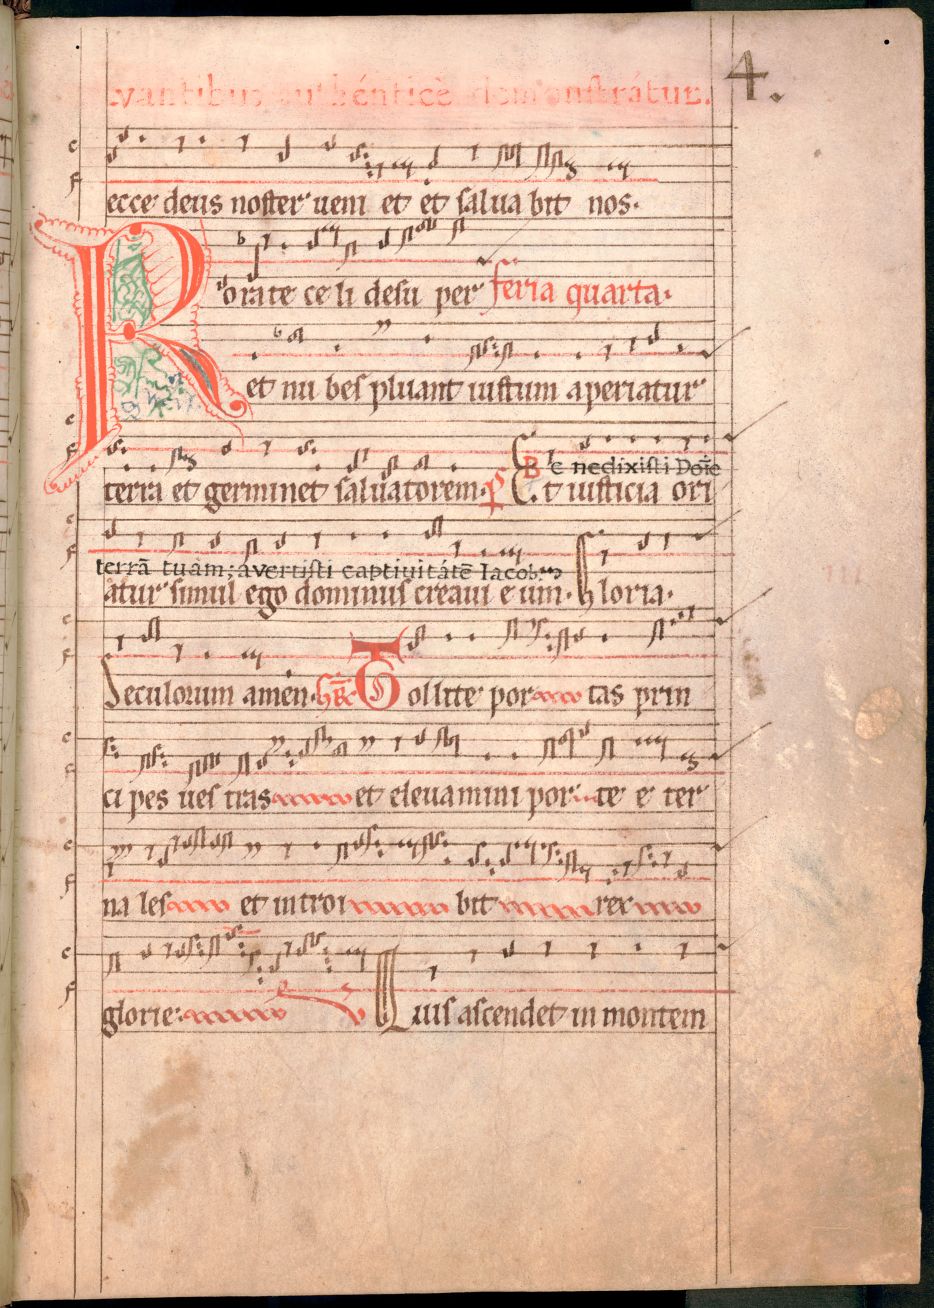 4.
ecce deus noster ueni et et salua bit nos.
Rorate ce li desu per feria quarta.
et nu bes pluant iustum aperiatur
terra et germinet saluatorem. ps Et iusticia ori
Be nedixisti Doīe
terrā tuam; avertisti captiuitátē Iacob.
atur simul ego dominus creaui e um. Gloria.
Seculorum amen. Tollite por tas prin
ci pes ues tras et eleuamini por te e ter
na les et introi bit rex
glorie. V Quis ascendet in montem